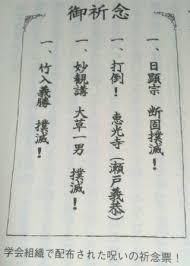 御祈念
一、日顕宗 断固撲滅!
一、打倒! 恵光寺(瀬戸義恭)
一、妙観講 大草一男 撲滅!
一、竹入義勝 撲滅!
学会組織で配布された呪いの祈念票!